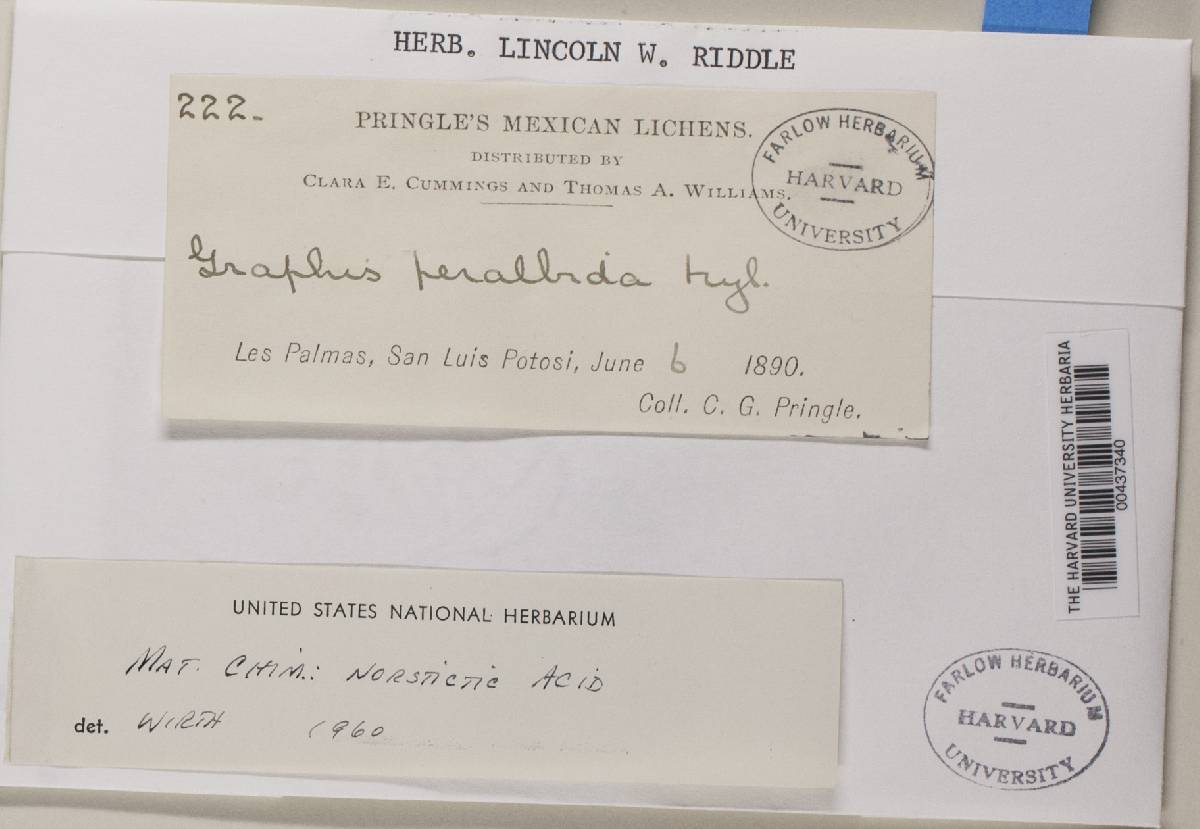 HERB. LINCOLN W. RIDDLE
222.
PRINGLE'S MEXICAN LICHENS.
DISTRIBUTED BY
CLARA E. CUMMINGS AND THOMAS A. WILLIAMS.
FARLOW HERBARIUM
HARVARD
UNIVERSITY
Graphis peralbida Nyl.
Les Palmas, San Luis Potosi, June 6 1890.
Coll. C. G. Pringle.
THE HARVARD UNIVERSITY HERBARIA
00437340
UNITED STATES NATIONAL HERBARIUM
MAT. CHIM.: NORSTICTIC ACID
det. WIRTH 1960
FARLOW HERBARIUM
HARVARD
UNIVERSITY